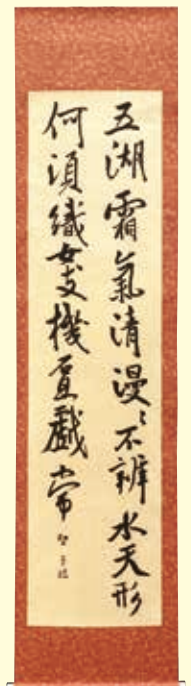 五湖霜氣清漫〻不辨水天形
何須織女支機